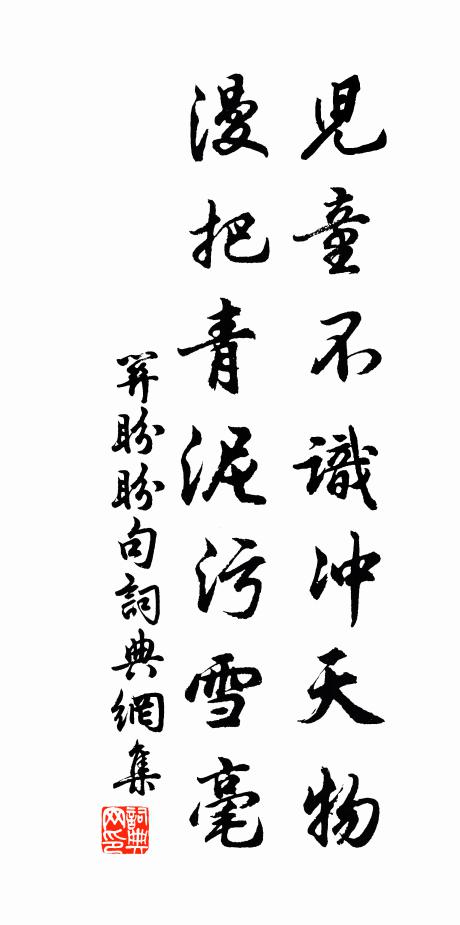 兒童不識冲天物
漫把青泥污雪毫
關盼盼句詞典網集
詞典
网印